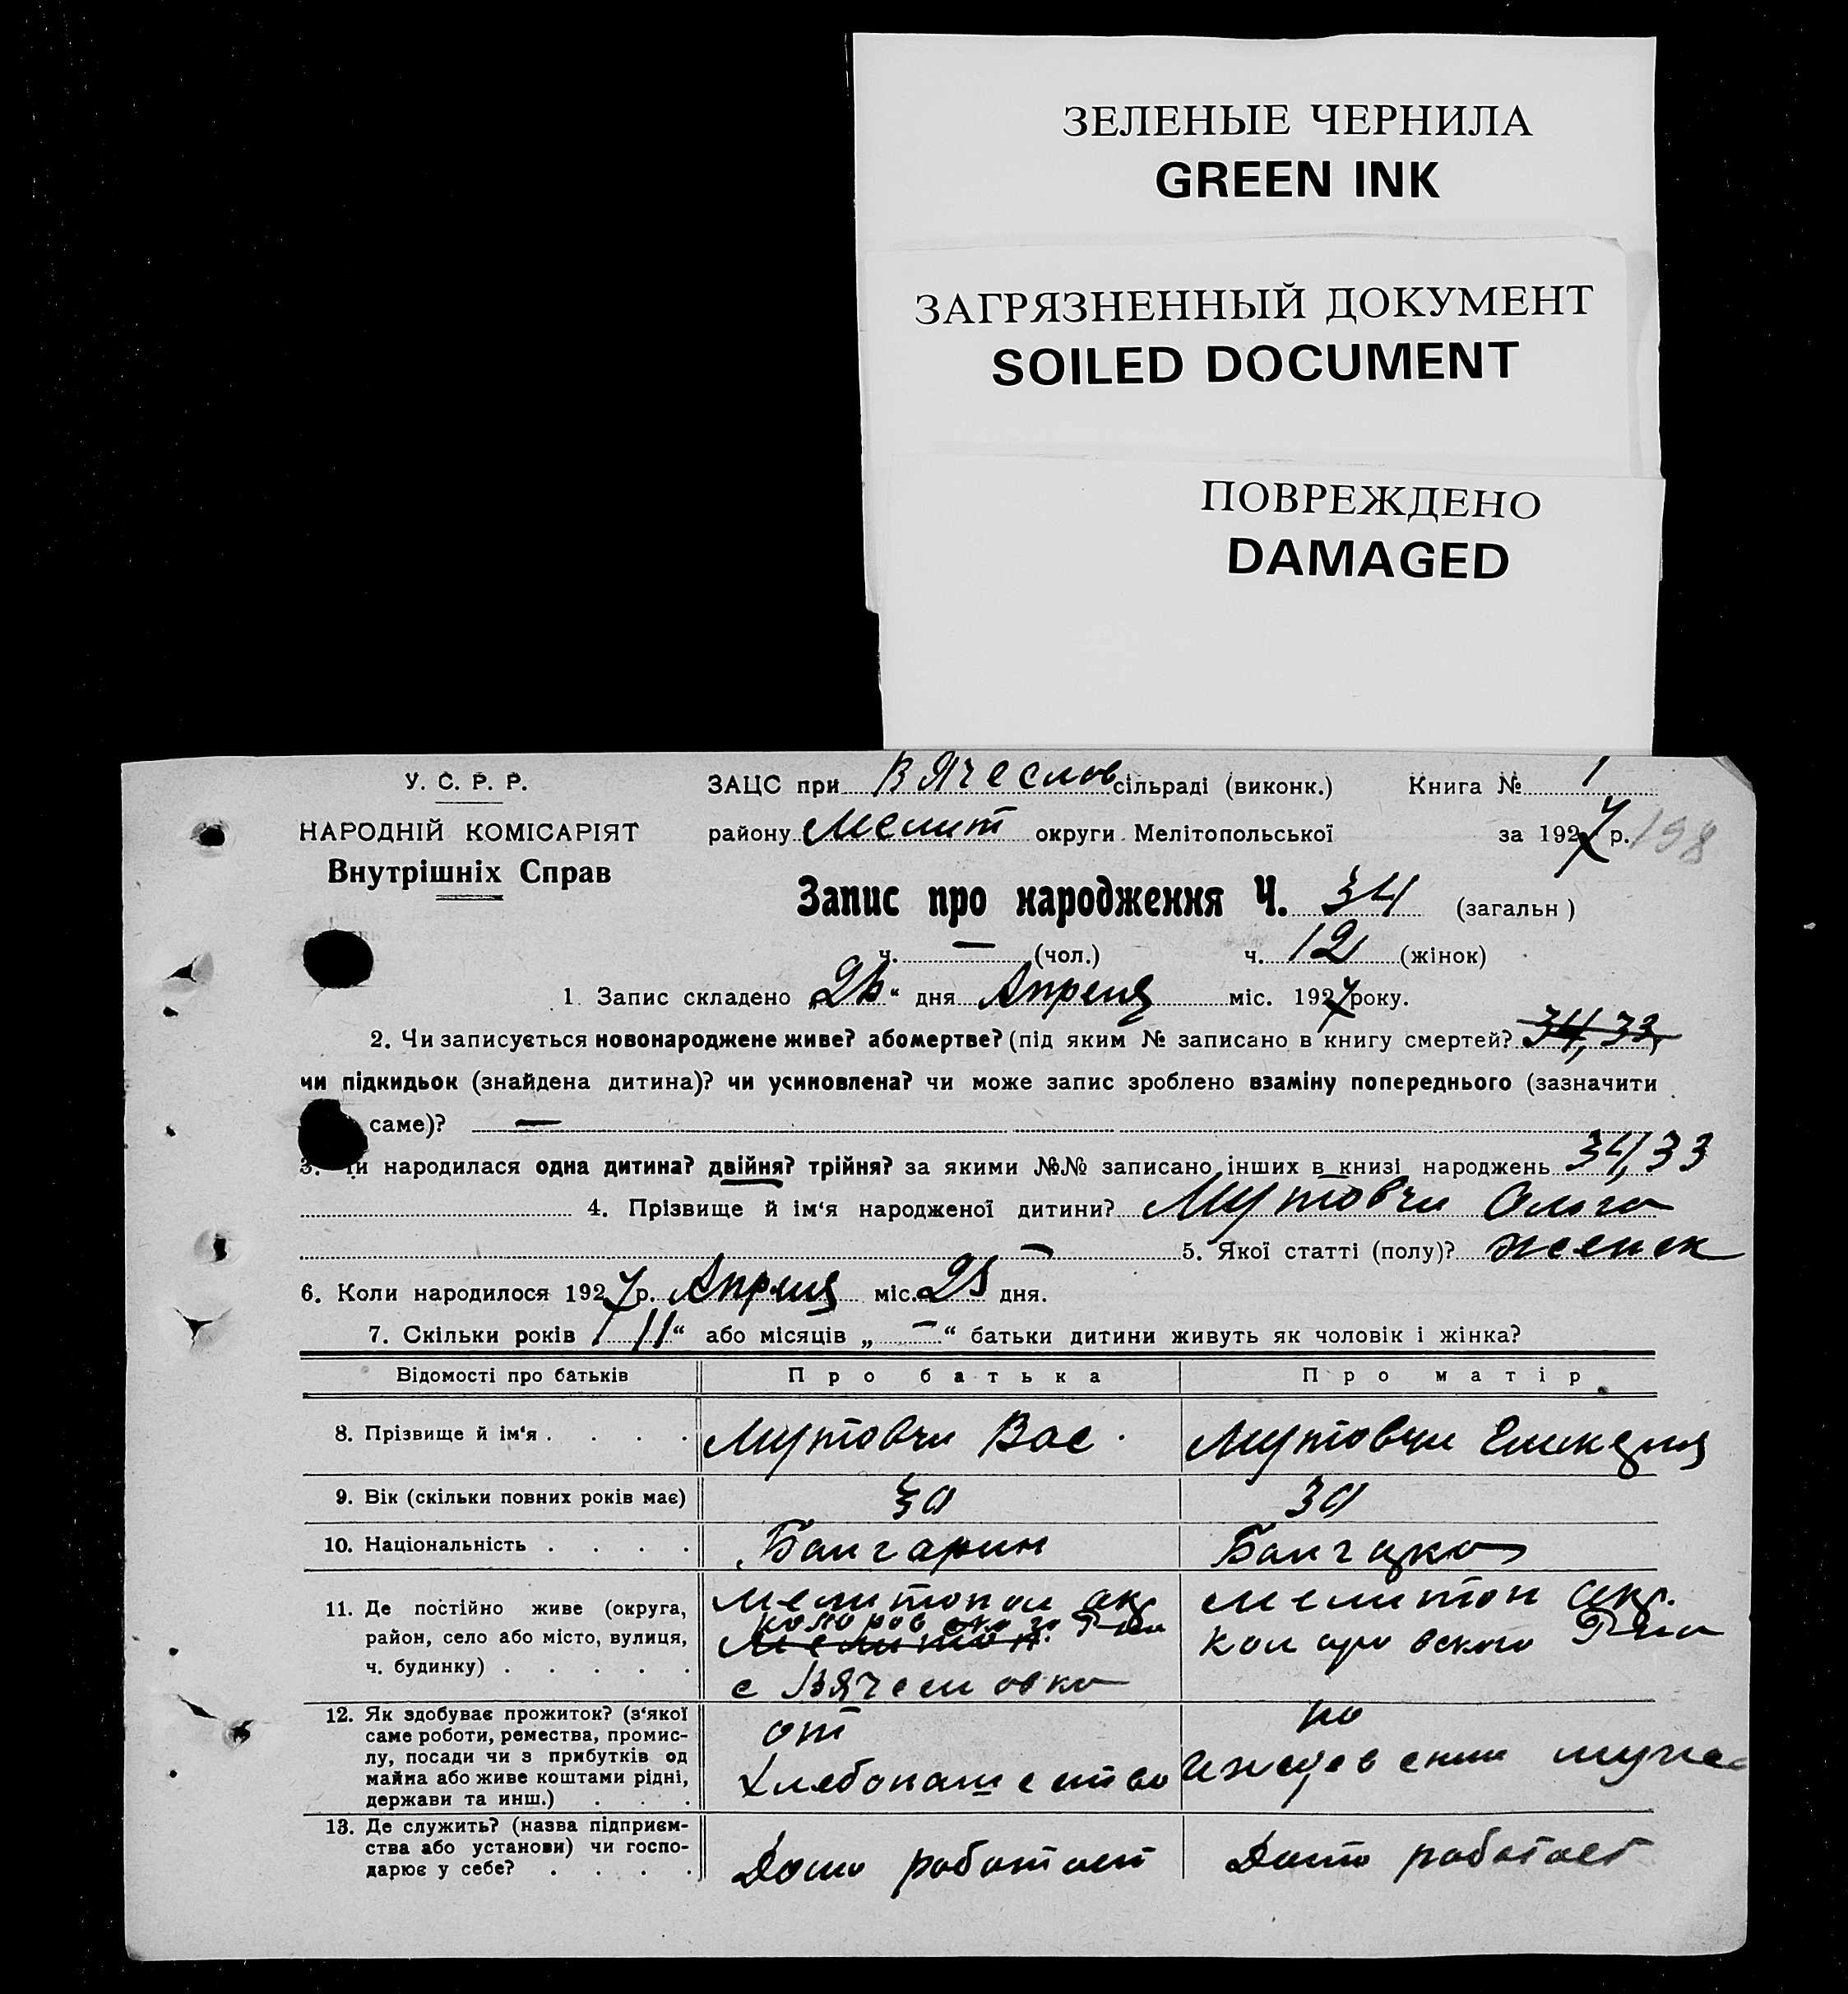 ЗЕЛЕНЫЕ ЧЕРНИЛА
GREEN INK
ЗАГРЯЗНЕННЫЙ ДОКУМЕНТ
SOILED DOCUMENT
ПОВРЕЖДЕНО
DAMAGED
У. С. Р. Р.
НАРОДНІЙ КОМІСАРІЯТ
Внутрішніх Справ
ЗАЦС при Вячеслов сільраді (виконк.) Книга № 1
району Мелит округи Мелітопольської за 1927 р. 198
Запис про народження Ч. 34 (загальн)
ч. — (чол.) ч. 12 (жінок)
1. Запис складено „ “ дня Апреля міс. 1927 року.
2. Чи записується новонароджене живе? або мертве? (під яким № записано в книгу смертей? 34, 33,
чи підкидьок (знайдена дитина)? чи усиновлена? чи може запис зроблено взаміну попереднього (зазначити
саме)? —
3. Чи народилася одна дитина? двійня? трійня? за якими №№ записано інших в книзі народжень 34, 33
4. Прізвище й ім‘я народженої дитини? Мутовчи Ольга
— 5. Якої статті (полу)? женск
6. Коли народилося 1927 р. Апреля міс. 25 дня.
7. Скільки років 11“ або місяців „—“ батьки дитини живуть як чоловік і жінка?
Відомості про батьків Про батька Про матір
8. Прізвище й ім‘я . . . . Мутовчи Вас. Мутовчи
9. Вік (скільки повних років має) 30 30
10. Національність . . . . Болгарин Болгарка
11. Де постійно живе (округа, район, село або місто, вулиця, ч. будинку) . . . . . Мелитопол окр
Коларовского Р-на
Мелитоп.
с Вячеславка
Мелитоп окр.
Коларовского Р-на
12. Як здобуває прожиток? (з‘якої саме роботи, ремества, промислу, посади чи з прибутків од майна або живе коштами рідні, держави та инш.) . . . от
Хлебопашество
на
иждевении мужа
13. Де служить? (назва підприємства або установи) чи господарює у себе? . . . . Дома работает Дома работает